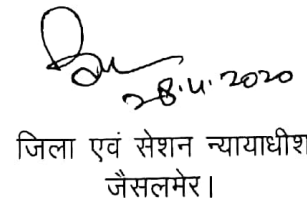 28.4.2020
जिला एवं सेशन न्यायाधीश
जैसलमेर।